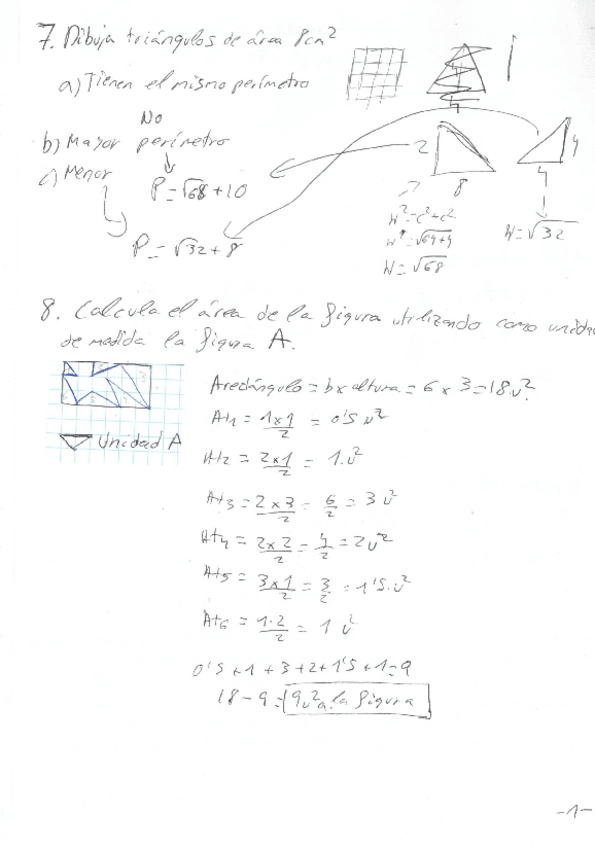 7. Dibuja triángulos de área 8cm²
a) Tienen el mismo perímetro
No
b) Mayor perímetro
c) Menor
P=√68+10
P=√32+8
4
2
8
4
4
H²=c²+c²
H=√64+4
H=√68
H=√32
8. Calcula el área de la figura utilizando como unidad
de medida la figura A.
Unidad A
Arectángulo = b x altura = 6 x 3 = 18u²
At1 = 1x1/2 = 0'5 u²
At2 = 2x1/2 = 1.u²
At3 = 2x3/2 = 6/2 = 3 u²
At4 = 2x2/2 = 4/2 = 2u²
At5 = 3x1/2 = 3/2 = 1'5.u²
At6 = 1.2/2 = 1 u²
0'5+1+3+2+1'5+1=9
18-9=9u² a la figura
-1-